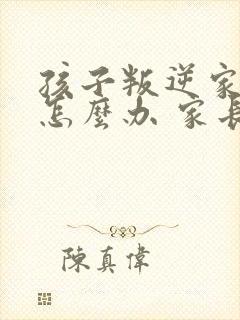 孩子叛逆家
怎麼办 家長
陳真偉